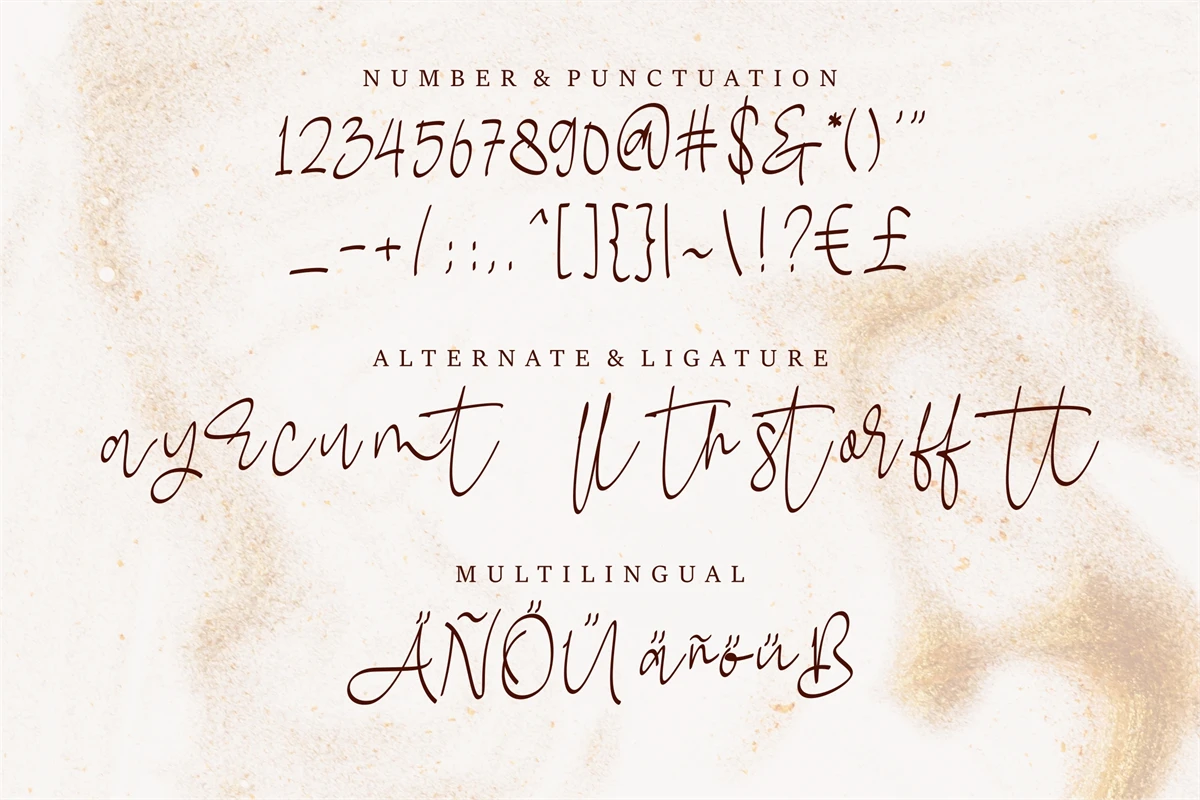 NUMBER & PUNCTUATION
1234567890@#$&*()'"
_-+/;:,.^[]{}|~\!?€£
ALTERNATE & LIGATURE
ayrcumt ll th st or ff tt
MULTILINGUAL
ÄÑÖÜ äñöüß